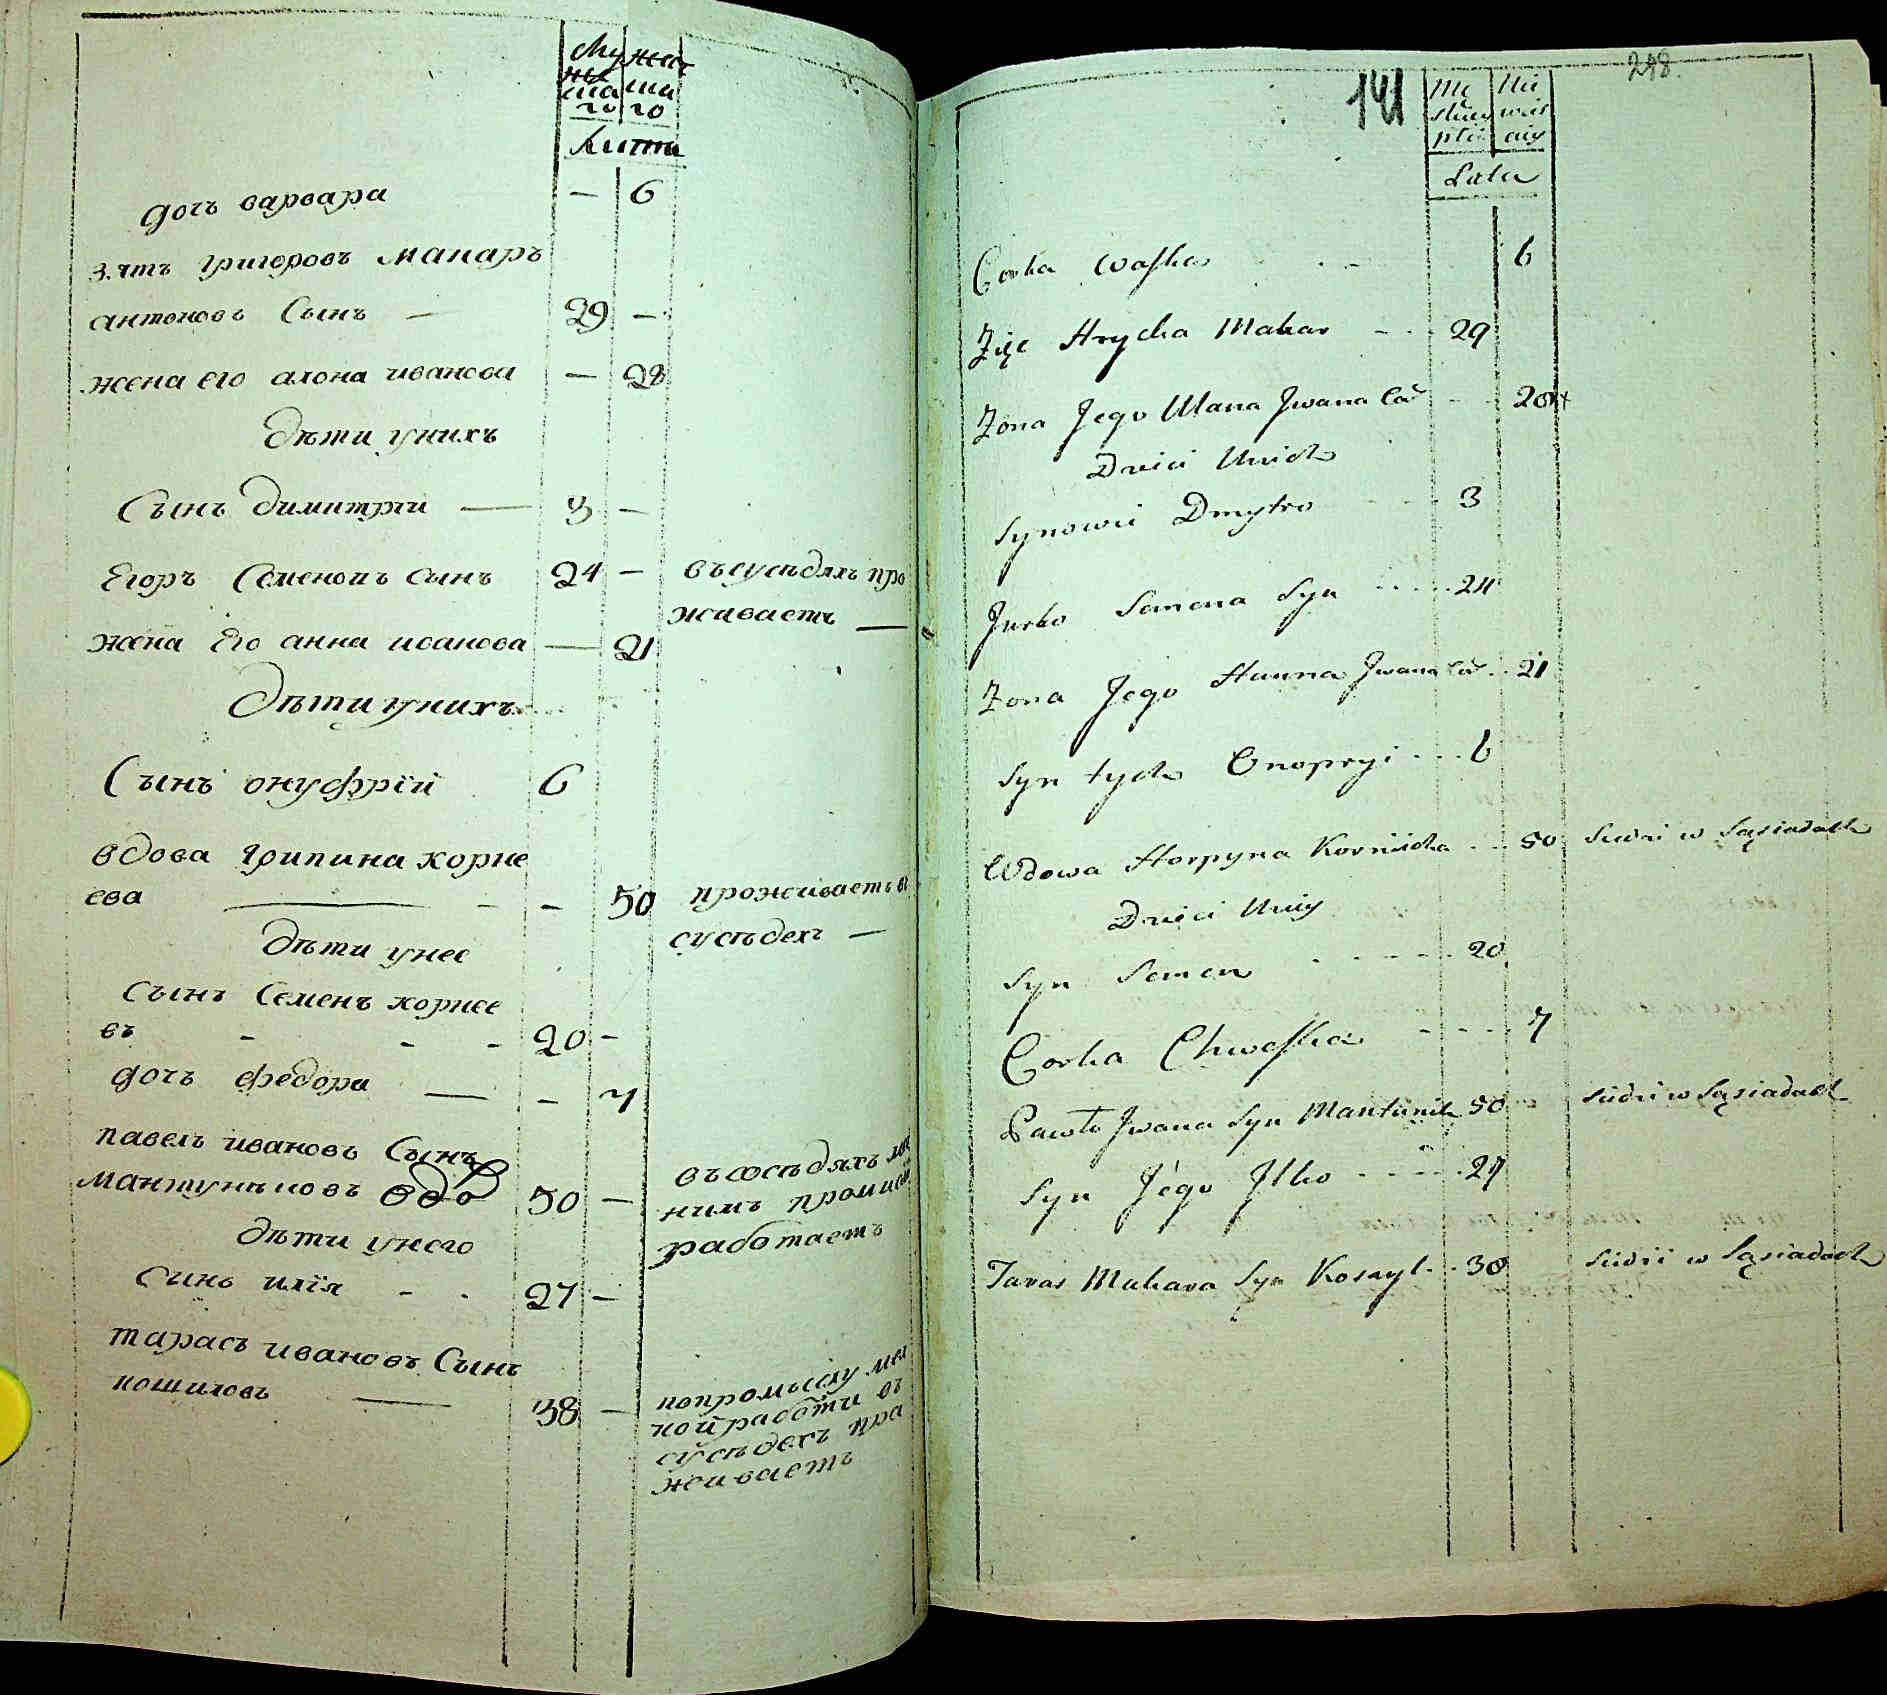 Му женс
жс
ша ша
го го
Лита
дочь варвара — 6
зять григоровъ макаръ
антоновъ Сынъ — 29 —
жена его алона иванова — 28
дѣти унихъ
Сынъ димитрїи — 3 —
Егоръ Семеновъ сынъ 24 — въсусѣдяхъ про
живаетъ —
жена Его анна иванова — 21
Дѣти унихъ
Сынъ онуфрїй 6
вдова грипина корне
ева — — 50 проживаетъ въ
сусѣдехъ —
дѣти унее
Сынъ Семенъ корнее
въ - - - 20 —
дочь федора — — 7
павелъ ивановъ Сынъ
мантуниковъ вдо 50 — въ сосѣдяхъ
нимъ
работаетъ
дѣти унего
Синъ илїя - - 27 —
тарасъ ивановъ Сынъ
кошиловъ — 38 — попромыслу
ной работи въ
сусѣдехъ про
живаетъ
141
298.
Mę Nie
skiey wias
płci ciey
Lata
Corka Waska 6
Zięc Hrycka Makar 29
Zona Jego Ulana Jwana Cor 28
Dzieci Unich
Synowie Dmytro 3
Jurko Semena Syn 24
Zona Jego Hanna Jwana Cor 21
Syn tych Onopryi 6
Wdowa Horpyna Korniicha 50 Siedzi w Sąsiadach
Dzieci Uniey
Syn Semen 20
Corka Chweska 7
Pawło Jwana Syn Mantunik 50 Siedzi w Sąsiadach
Syn Jego Jlko 27
Taras Makara Syn Koszyl 38 Siedzi w Sąsiadach